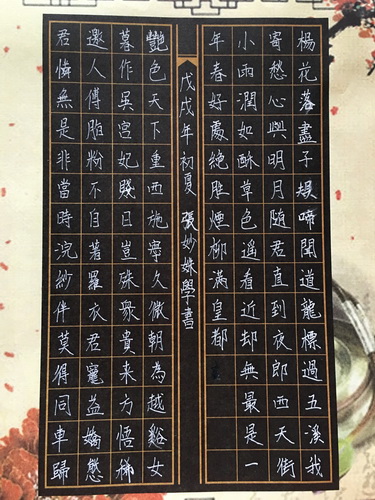 楊花落盡子規啼聞道龍標過五溪我
寄愁心與明月隨君直到夜郎西天街
小雨潤如酥草色遙看近却無最是一
年春好處絕勝煙柳滿皇都
戊戌年初夏 張妙姝學書
艷色天下重西施寧久微朝為越谿女
暮作吳宮妃賤日豈殊眾貴来方悟稀
邀人傅脂粉不自著羅衣君寵益嬌態
君憐無是非當時浣紗伴莫得同車歸